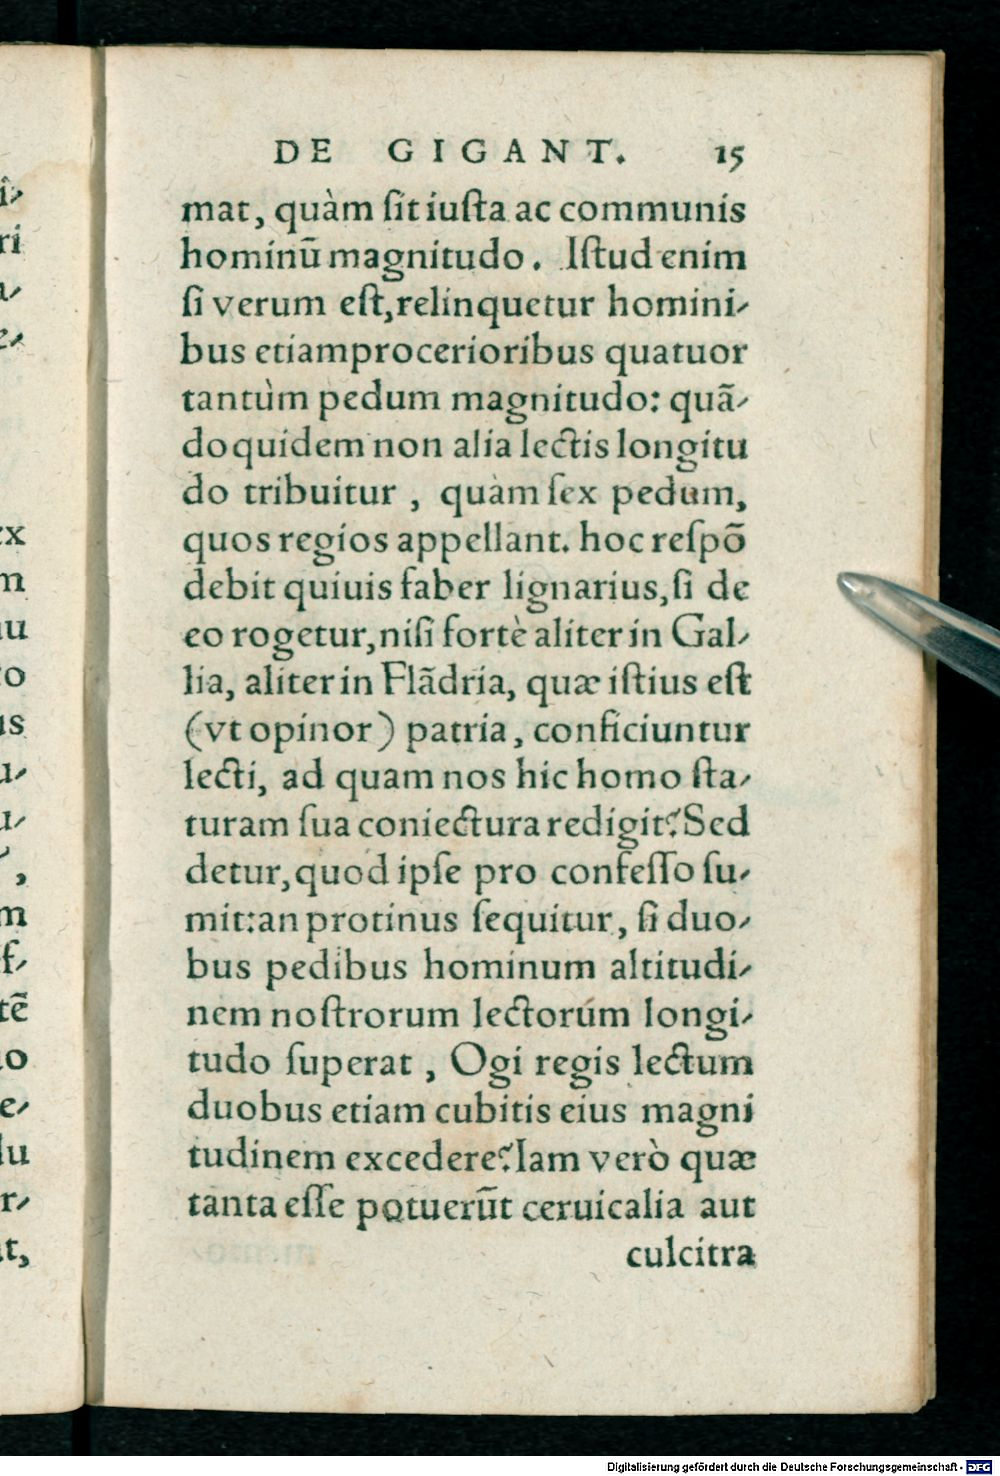 DE GIGANT. 15
mat, quàm ſit iuſta ac communis
hominũ magnitudo. Iſtud enim
ſi verum eſt,relinquetur homini-
bus etiamprocerioribus quatuor
tantùm pedum magnitudo: quã-
doquidem non alia lectis longitu
do tribuitur, quàm ſex pedum,
quos regios appellant. hoc reſpõ
debit quiuis faber lignarius,ſi de
eo rogetur,niſi fortè aliter in Gal-
lia, aliter in Flãdria, quæ iſtius eſt
(vt opinor) patria, conficiuntur
lecti, ad quam nos hic homo ſta-
turam ſua coniectura redigit? Sed
detur,quod ipſe pro confeſſo ſu-
mit:an protinus ſequitur, ſi duo-
bus pedibus hominum altitudi-
nem noſtrorum lectorúm longi-
tudo ſuperat, Ogi regis lectum
duobus etiam cubitis eius magni
tudinem excedere? Iam verò quæ
tanta eſſe potuerũt ceruicalia aut
culcitra
Digitalisierung gefördert durch die Deutsche Forschungsgemeinschaft - DFG